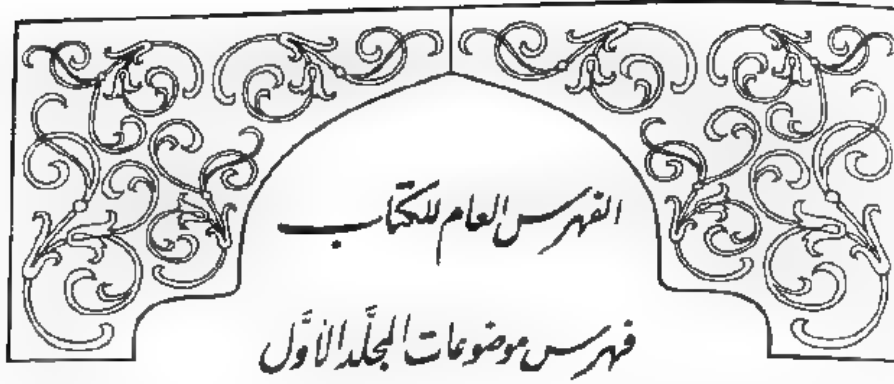 الفهرس العام للكتاب
فهرس موضوعات المجلَّد الأوَّل